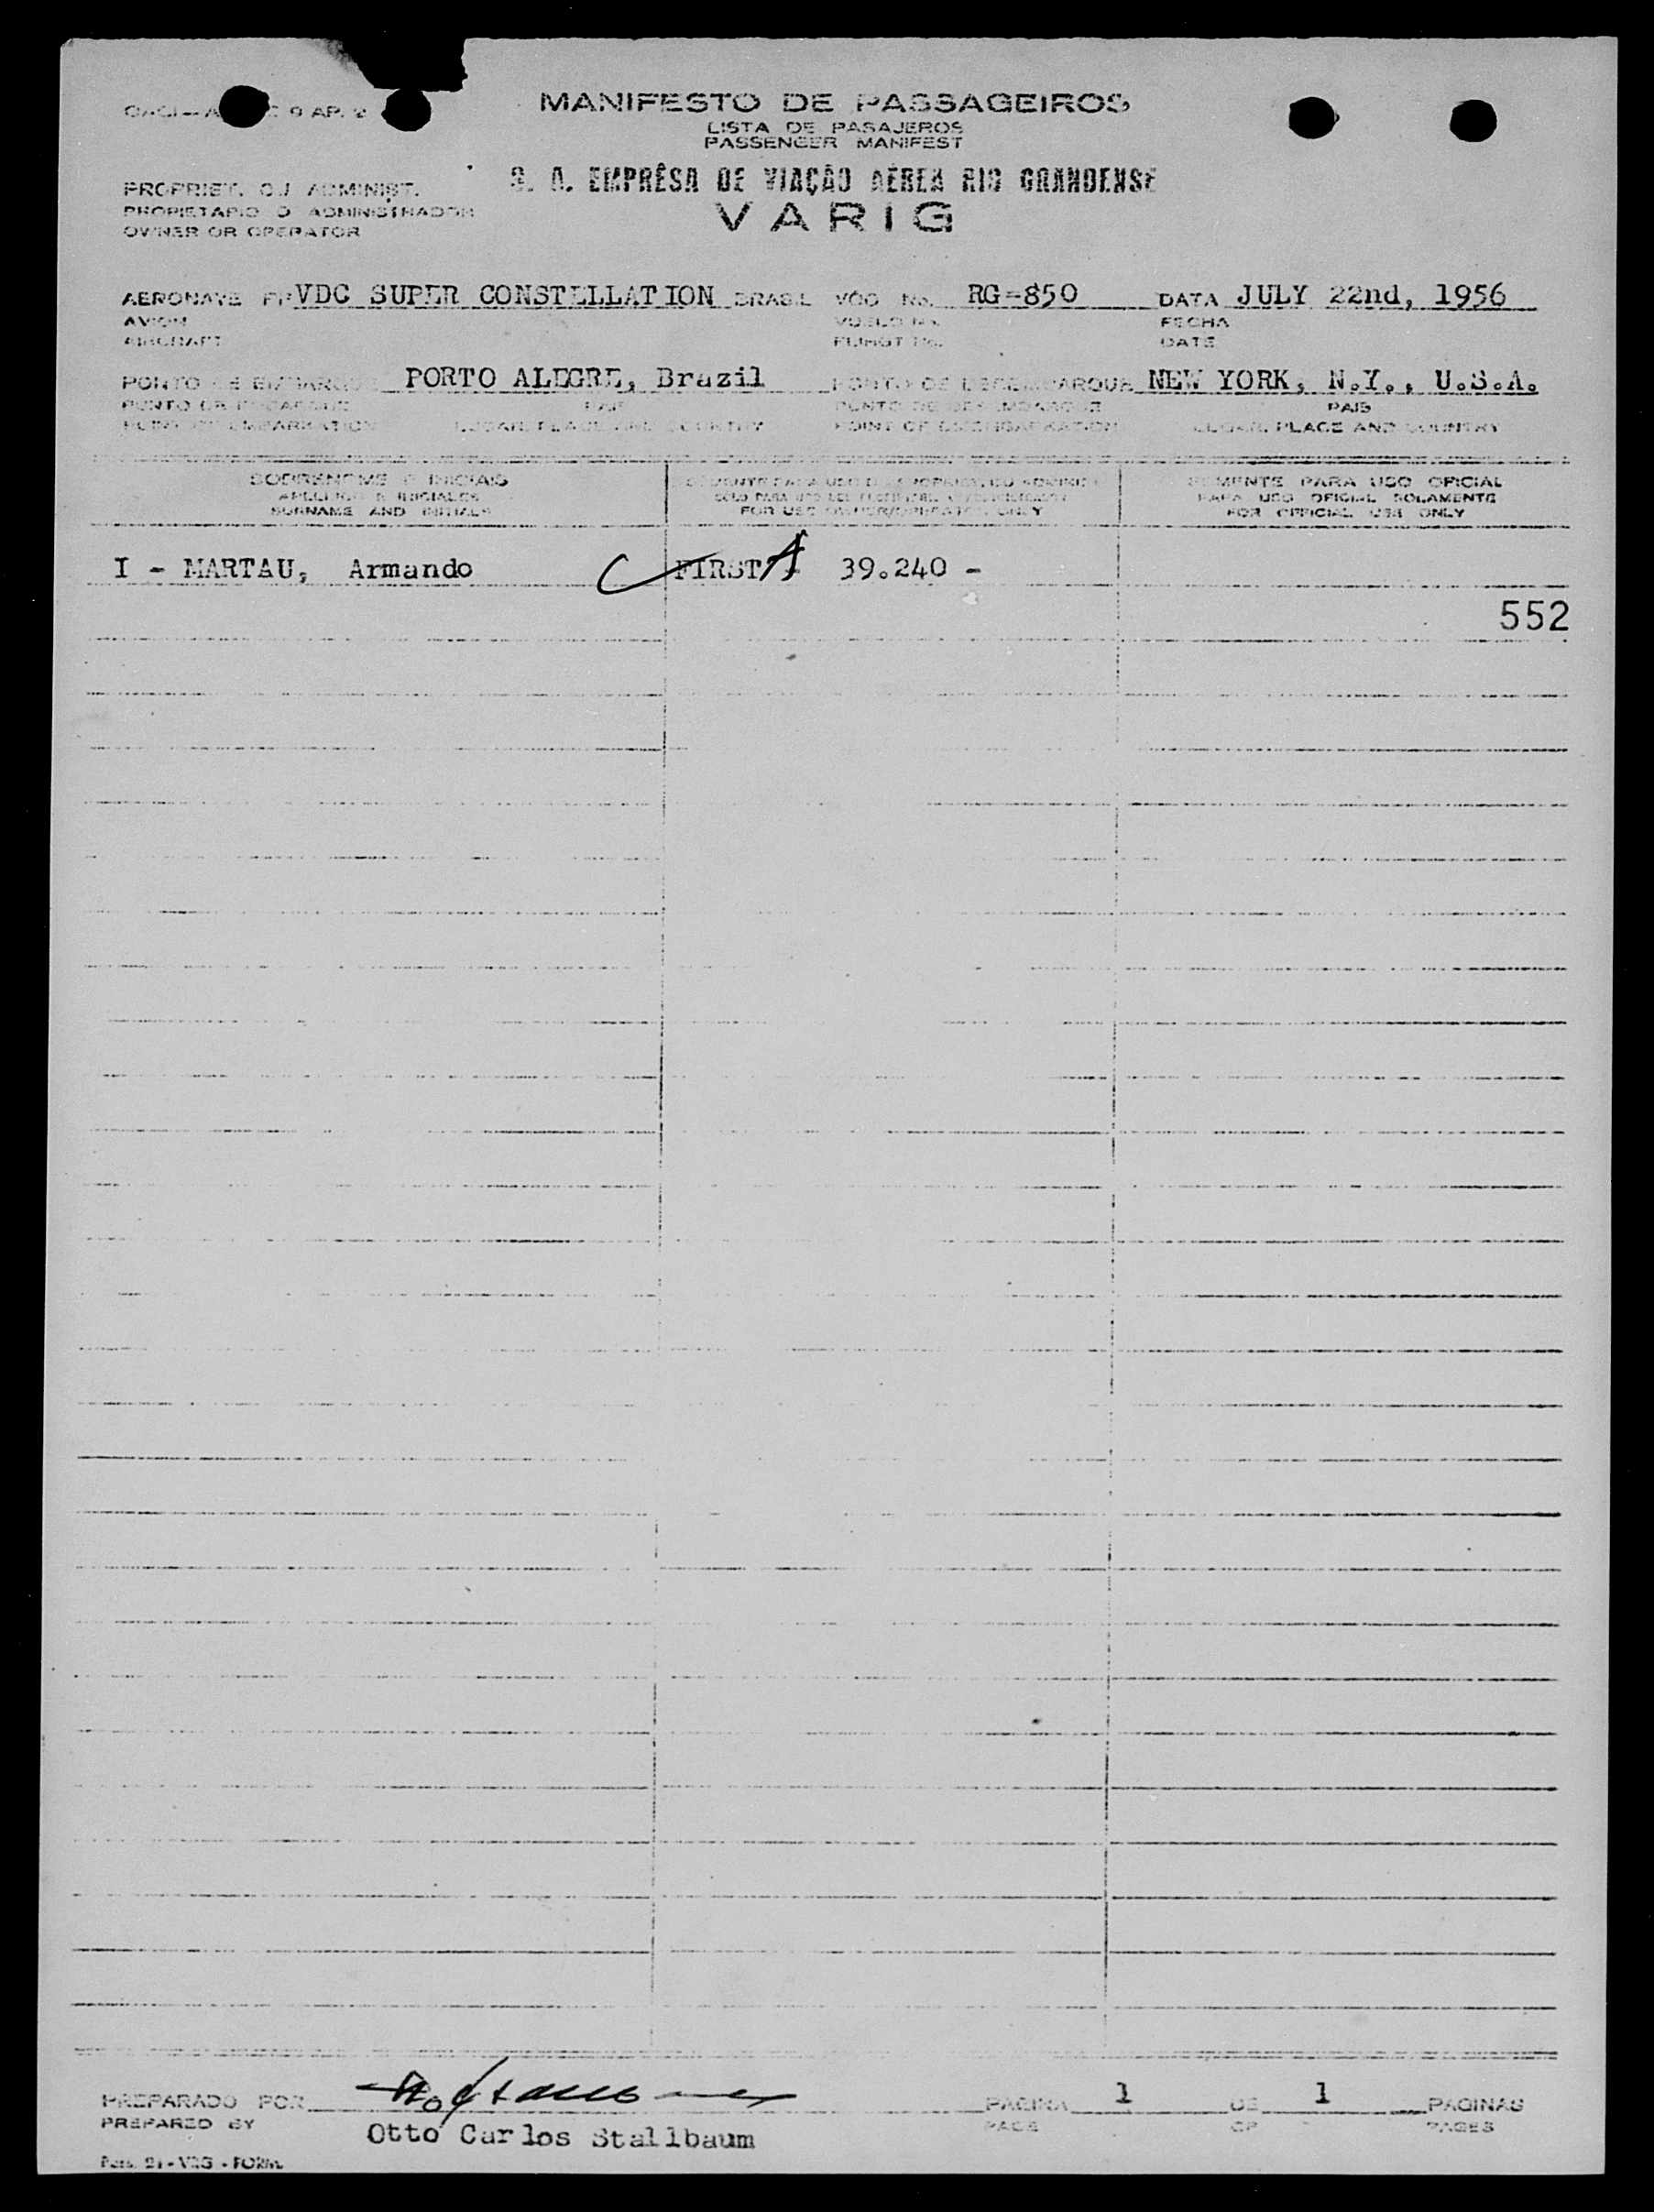 9 AP. 2
MANIFESTO DE PASSAGEIROS
LISTA DE PASAJEROS
PASSENGER MANIFEST
PROPRIET. OU ADMINIST.
PROPIETARIO O ADMINISTRADOR
OWNER OR OPERATOR
S. A. EMPRÊSA DE VIAÇÃO AÉREA RIO GRANDENSE
VARIG
AERONAVE PP VDC SUPER CONSTELLATION BRASIL VÔO No. RG-850 DATA JULY 22nd, 1956
AVION VUELO No. FECHA
AIRCRAFT FLIGHT No. DATE
PONTO DE EMBARQUE PORTO ALEGRE, Brazil PONTO DE DESEMBARQUE NEW YORK, N.Y., U.S.A.
PUNTO DE EMBARQUE PAIS PUNTO DE DESEMBARQUE PAIS
POINT OF EMBARKATION LUGAR, PLACE AND COUNTRY POINT OF DISEMBARKATION LUGAR, PLACE AND COUNTRY
SOBRENOME E INICIAIS
APELLIDO E INICIALES
SURNAME AND INITIALS
FOR USE OWNER/OPERATOR ONLY
SOMENTE PARA USO OFICIAL
PARA USO OFICIAL SOLAMENTE
FOR OFFICIAL USE ONLY
I - MARTAU, Armando FIRST A 39.240 -
552
PREPARADO POR PAGINA 1 DE 1 PAGINAS
PREPARED BY Otto Carlos Stallbaum PAGE OF PAGES